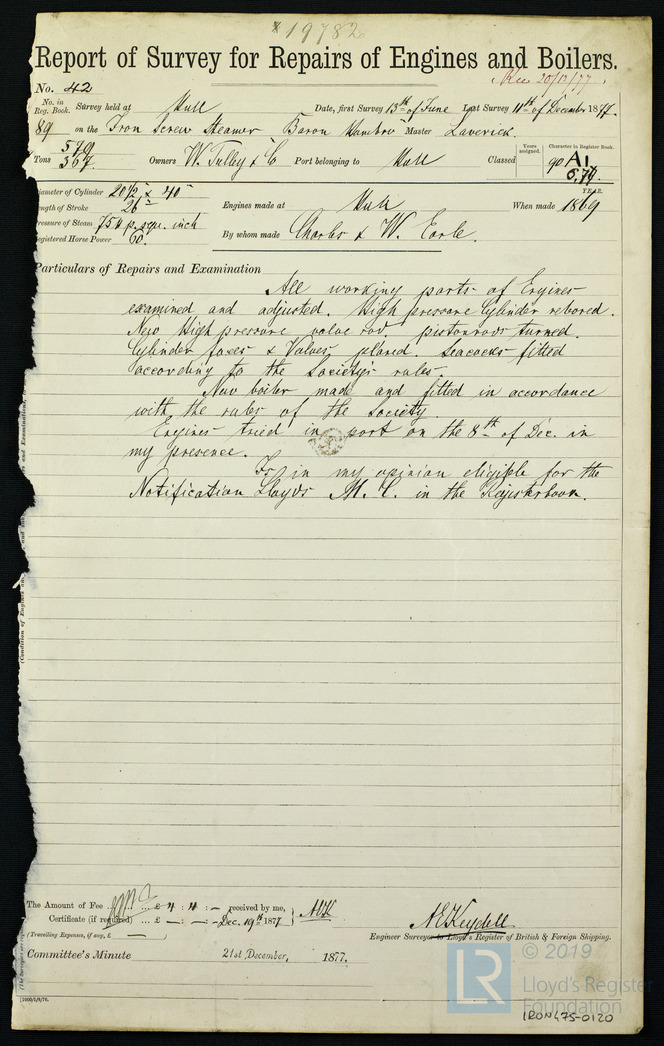 *19782
Report of Survey for Repairs of Engines and Boilers.
Rec 20/12/77.
No. 42
No. in Reg. Book. Survey held at Hull Date, first Survey 13th of June Last Survey 11th of December 1877.
89 on the Iron Screw Steamer Baron Hambro Master Laverick.
Tons 579 367. Owners W. Tulley & Co Port belonging to Hull Classed Years assigned. 90 Character in Register Book. A1 6,74.
Diameter of Cylinder 20½" x 40"
Length of Stroke 26"
Pressure of Steam 75 p. squ. inch
Registered Horse Power 60.
Engines made at Hull When made YEAR. 1869
By whom made Charles & W. Earle.
Particulars of Repairs and Examination
All working parts of Engines
examined and adjusted. High pressure Cylinder rebored.
New High pressure valve rod, pistonrods turned.
Cylinder faces & Valves planed. Seacocks fitted
according to the Society's rules.
New boiler made and fitted in accordance
with the rules of the Society.
Engines tried in port on the 8th of Dec. in
my presence.
Is in my opinion eligible for the
Notification Lloyds M. C. in the Registerbook.
The Amount of Fee ... £ 4 : 4 : – received by me,
Certificate (if required) ... £ – : – : – Dec. 19th 1877
(Travelling Expenses, if any, £ – )
A E Keydell
Engineer Surveyor to Lloyd's Register of British & Foreign Shipping.
Committee's Minute 21st December, 1877.
LR © 2019
Lloyd's Register
Foundation
IRON475-0120